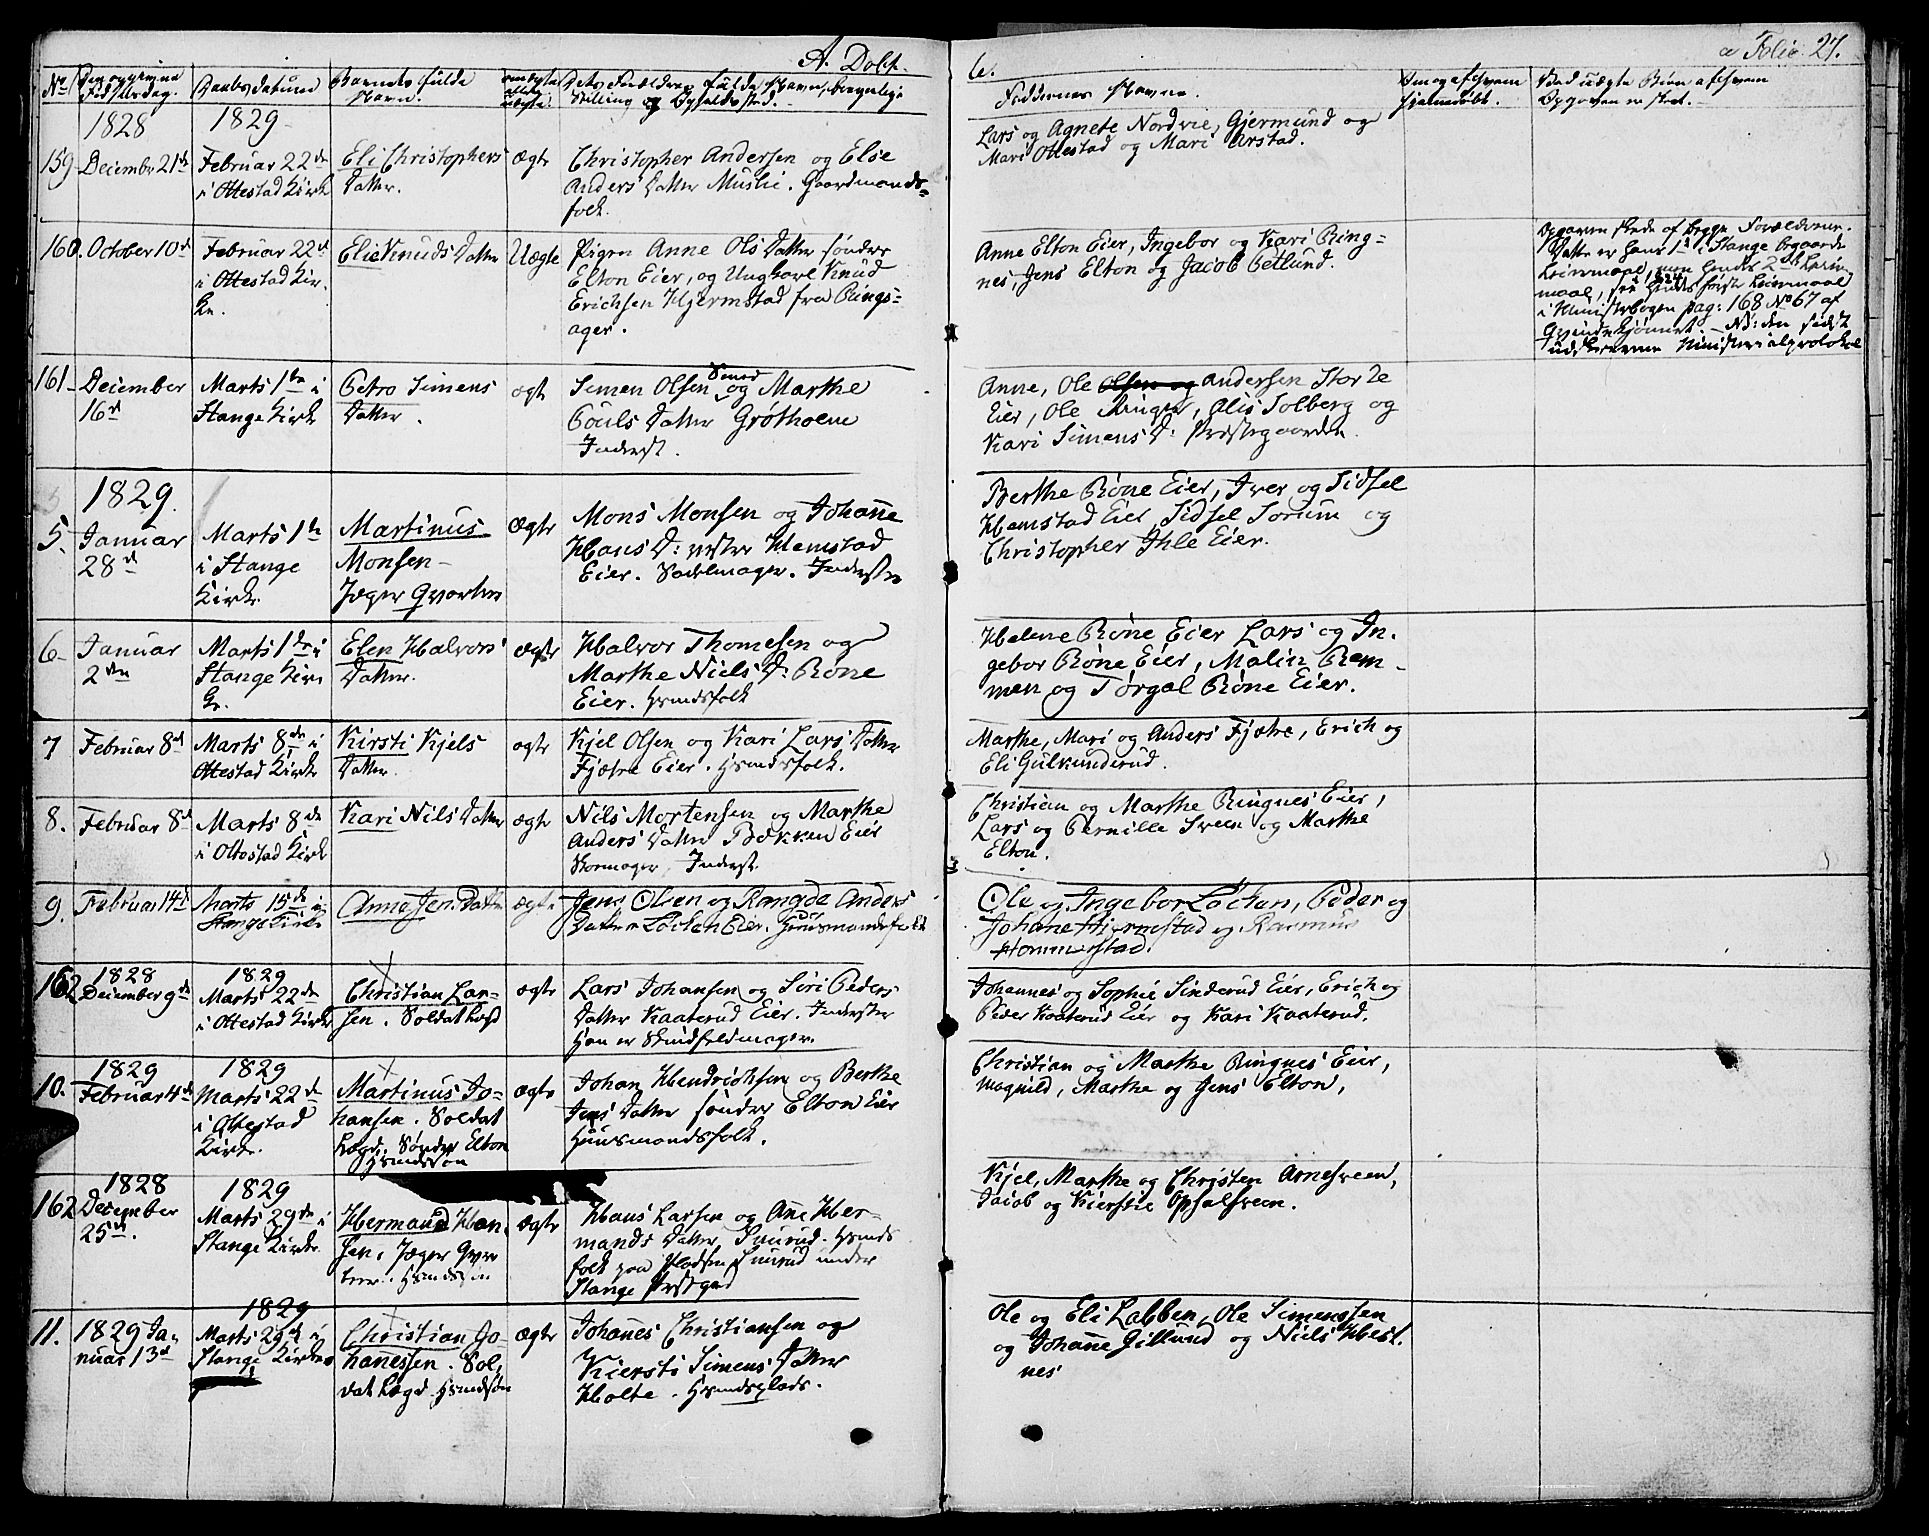 A. Døbt.
No
Den opgivne Fødselsdag.
Daabs datum
Barnets fulde Navn.
om ægte eller uægte.
Dets Forældres fulde Navne, borgerlige Stilling og Opholdssted.
6.
a Folio. 27.
Faddernes Navne.
Om og af hvem hjemmedøbt.
Ved uægte Børn af hvem Opgaven er skeet.
1828
1829
159
December 21de
Februar 22de
i Ottestad Kirk
Eli Christophers
Datter.
ægte
Christopher Andersen og Else
Anders Datter Muslie. Gaardmands-
folk.
Lars og Agnete Nordvie, Gjermund og
Mari Ottestad og Mari Arstad.
160.
October 10de
Februar 22de
i Ottestad Kir-
ke.
Elie Knuds Datter
Uægte
Pigen Anne Ols Datter søndre
Elton Eier, og Ungkarl Knud
Erichsen Hjermstad fra Rings-
ager.
Anne Elton Eier, Ingebor og Kari Ring-
nes, Jens Elton og Jacob Betlund.
Opgaven skede af begge Forældrene.
Dette er hans 1ste i Stange begaaede
Leiermaal, men hendes 2det Leier-
maal, see hendes første Leiermaal
i Ministerbogen pag: 168 No 67 af
Qvindekjønnet. NB: den sidst
udskrevne Ministerialprotokol
161
December
16de
Marts 1te i
Stange Kirk
Petro Simens
Datter.
ægte
Simen Olsen Smed og Marthe
Pouls Datter Grøtholm
Inderst.
Anne, Ole Olsen og Andersen Storte
Eier, Ole Ringer, Olis Solberg og
Kari Simens D: Præstegaarden.
1829.
5.
Januar
28de
Marts 1te
i Stange
Kirke
Martinus
Monsen
Jæger Qvarteer
Ægte
Mons Monsen og Johane
Hans D: vestre Hemstad
Eier. Sadelmager. Inderster
Berthe Røne Eier, Iver og Sidsel
Hemstad Eier, Sidsel Sørum og
Christopher Ihle Eier.
6
Januar
2den
Marts 1te i
Stange Kir
ke.
Elen Halvors
Datter.
ægte
Halvor Thomesen og
Marthe Niels D: Røne
Eier. Hsmdsfolk
Helene Røne Eier Lars og In-
gebor Røne Eier, Malin Rem-
men og Tørgal Røne Eier.
7
Februar 8de
Marts 8de i
Ottestad Kirke
Kirsti Kjels
Datter.
ægte
Kjel Olsen og Kari Lars Datter
Fjætre Eier. Hsmdsfolk.
Marthe, Mari og Anders Fjætre, Erich og
Eli Gulkunderud.
8.
Februar 8de
Marts 8de
i Ottestad Kirk
Kari Nils Datter
ægte
Nils Mortensen og Marthe
Anders Datter Bekken Eier
Skomager, Inderst.
Christian og Marthe Ringnes Eier,
Lars og Pernille Sveen og Marthe
Elton.
9.
Februar 14de
Marts 15de i
Stange Kirke
Anne Jens Datter
ægte
Jens Olsen og Rangde Anders
Datter Løcten Eier. Huusmandsfolk
Ole og Ingebor Løcten, Peder og
Johane Hjermstad og Rasmus
Hommerstad.
1828
162
December 9de
1829
Marts 22de
i Ottestad Kirke
Christian Lar-
sen. Soldat Lægd
ægte
Lars Johansen og Siri Peders
Datter Kaaterud Eier. Inderster
Han er Skindfeldmager.
Johannes og Sophie Sinderud Eier, Erich og
Peder Kaaterud Eier og Kari Kaaterud.
1829
10.
Februar 4de
1829
Marts 22de
i Ottestad
Kirke.
Martinus Jo-
hansen. Soldat
Lægd. Søndre Elton
Hsmdssøn
ægte
Johan Hendrichsen og Berthe
Jens Datter søndre Elton Eier
Huusmandsfolk.
Christian og Marthe Ringnes Eier,
Magnild, Marthe og Jens Elton,
1828
162
December
25de.
1829
Marts 29de i
Stange Kirke
Hermand Han-
sen, Jæger Qvar
teer. Hsmdssøn
ægte
Hans Larsen og Ane Her-
mands Datter, Snurud. Hsmds
folk paa Pladsen Snurud under
Stange Præstgrd
Kjel, Marthe og Christen Arnesveen,
Jacob og Kierstie Opsalsveen.
11.
1829 Ja-
nuar 13de
1829
Marts 29de i
Stange Kirke
Christian Jo-
hanessen. Sol-
dat Lægd. Hsmdsøn
ægte
Johanes Christiansen og
Kiersti Simens Datter
Holte. Hsmdsplads.
Ole og Eli Labben, Ole Simenssen
og Johanne Gillund og Niels Hest-
nes